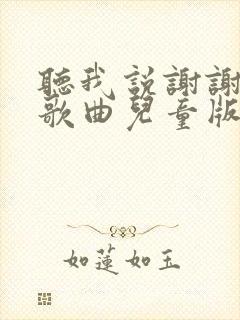 聽我說謝謝
歌曲兒童版
如蓮如玉